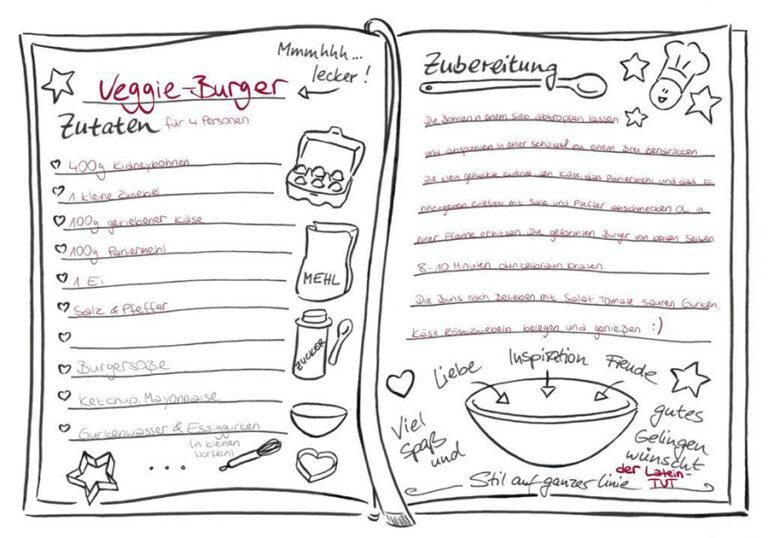 Mmmhhh...
lecker!
Veggie-Burger
Zutaten für 4 Personen
400g Kidneybohnen
1 kleine Zwiebel
100g geriebener Käse
100g Paniermehl
1 Ei
Salz & Pfeffer
Burgersoße
Ketchup, Mayonnaise
Gurkenwasser & Essiggurken
(in kleinen
Würfeln)
...
MEHL
ZUCKER
Zubereitung
Die Bohnen in einem Sieb abtropfen lassen
und abspülen. In einer Schüssel zu einem Brei zerdrücken
Die klein gehackte Zwiebel, den Käse, das Paniermehl und das Ei
hinzugeben zuletzt mit Salz und Pfeffer abschmecken Öl in
einer Pfanne erhitzen. Die geformten Burger von beiden Seiten
8-10 Minuten dunkelbraun braten
Die Buns nach Belieben mit Salat Tomate, sauren Gurken,
Käse Röstzwiebeln belegen und genießen :)
Liebe
Inspiration
Freude
Viel
Spaß
und
gutes
Gelingen
wünscht
der Latein-
TUT
Stil auf ganzer Linie